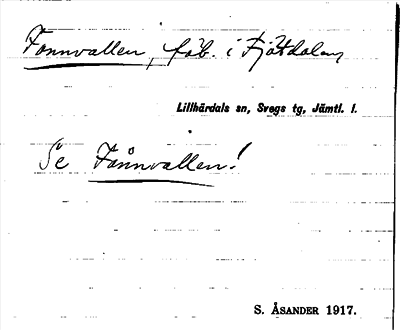 Fonnvallen, fäb. i Fjätdalen
Lillhärdals sn, Svegs tg, Jämtl. l.
Se Fånnvallen!
S. ÅSANDER 1917.